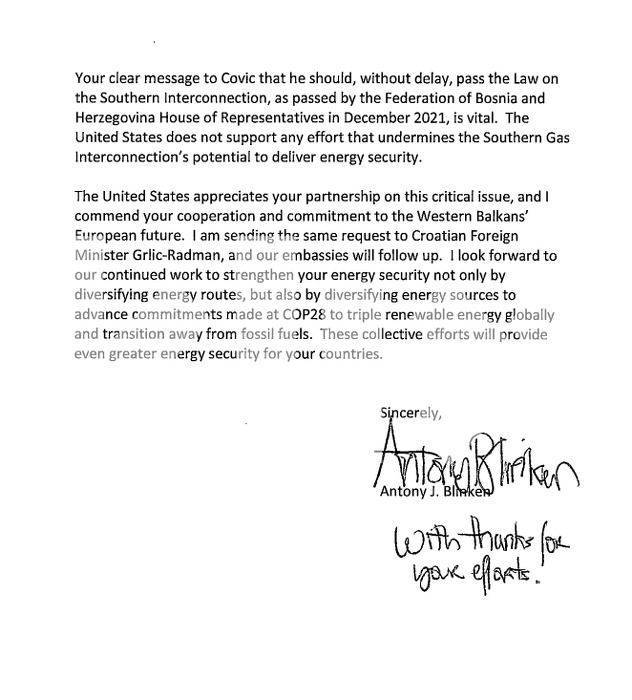 Your clear message to Covic that he should, without delay, pass the Law on
the Southern Interconnection, as passed by the Federation of Bosnia and
Herzegovina House of Representatives in December 2021, is vital.  The
United States does not support any effort that undermines the Southern Gas
Interconnection's potential to deliver energy security.
The United States appreciates your partnership on this critical issue, and I
commend your cooperation and commitment to the Western Balkans'
European future.  I am sending the same request to Croatian Foreign
Minister Grlic-Radman, and our embassies will follow up.  I look forward to
our continued work to strengthen your energy security not only by
diversifying energy routes, but also by diversifying energy sources to
advance commitments made at COP28 to triple renewable energy globally
and transition away from fossil fuels.  These collective efforts will provide
even greater energy security for your countries.
Sincerely,
Antony Blinken
Antony J. Blinken
With thanks for
your efforts.